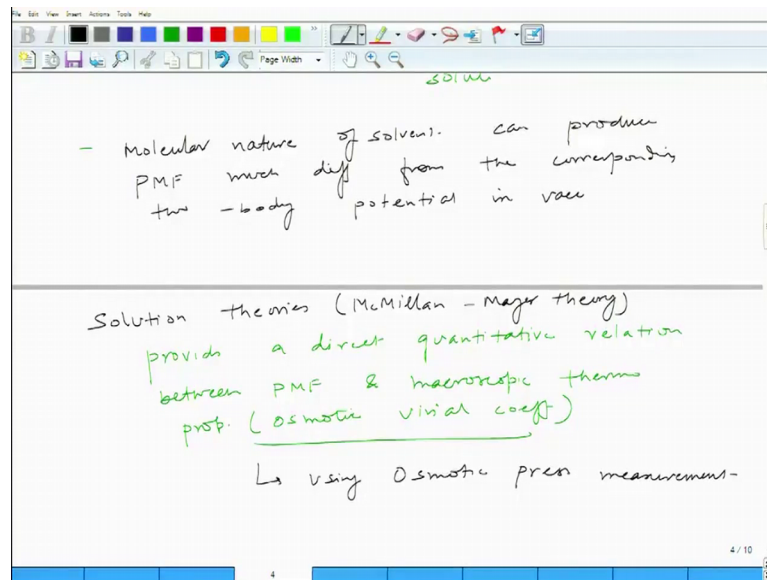 File Edit View Insert Actions Tools Help
B I
Page Width
- Molecular nature of solvent. can produce
PMF much diff from the corresponding
two-body potential in vacu
Solution theories (McMillan - Mayer theory)
provids a direct quantitative relation
between PMF & macroscopic thermo
prop. (osmotic virial coeff)
↳ using Osmotic press measurement
4 / 10
4